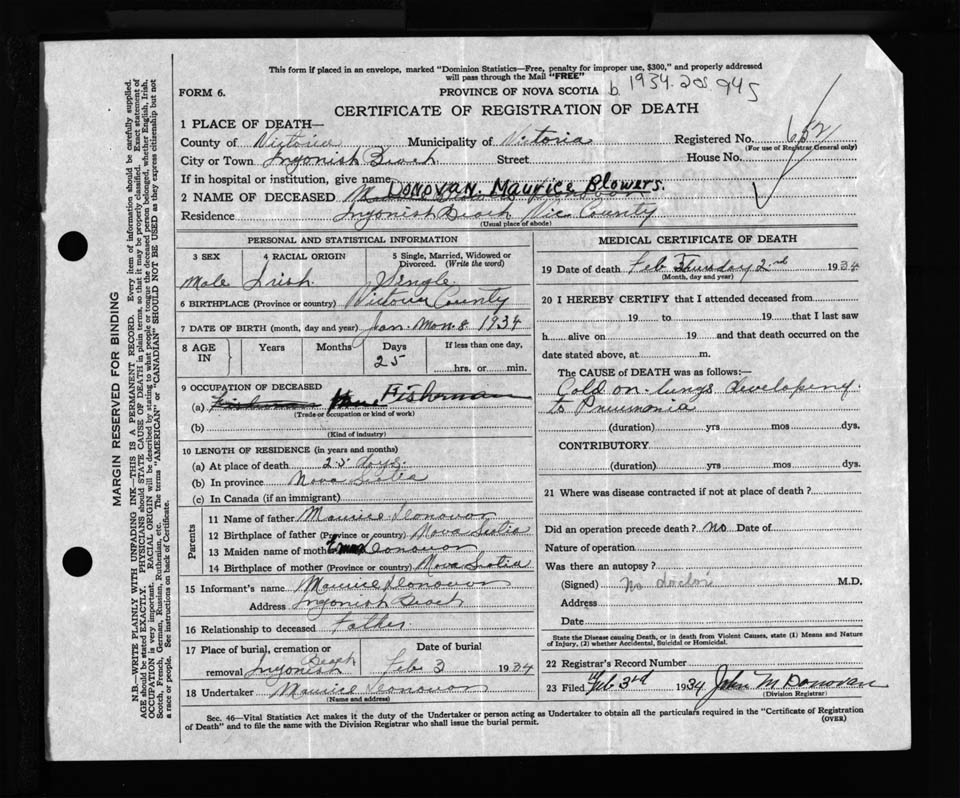 This form if placed in an envelope, marked "Dominion Statistics—Free, penalty for improper use, $300," and properly addressed
will pass through the Mail "FREE"
b. 1934-205 945
FORM 6.
PROVINCE OF NOVA SCOTIA
CERTIFICATE OF REGISTRATION OF DEATH
1 PLACE OF DEATH—
County of Victoria Municipality of Victoria Registered No. 652
(For use of Registrar General only)
City or Town Ingonish Beach Street House No.
If in hospital or institution, give name
2 NAME OF DECEASED DONOVAN. Maurice Blowers.
Residence Ingonish Beach Vic. County
(Usual place of abode)
PERSONAL AND STATISTICAL INFORMATION
3 SEX 4 RACIAL ORIGIN 5 Single, Married, Widowed or
Divorced. (Write the word)
Male Irish Single
6 BIRTHPLACE (Province or country) Victoria County
7 DATE OF BIRTH (month, day and year) Jan. Mon. 8 1934
8 AGE IN Years Months Days If less than one day,
25 hrs. or min.
9 OCCUPATION OF DECEASED
(a) Fisherman
(Trade or occupation or kind of work)
(b)
(Kind of industry)
10 LENGTH OF RESIDENCE (in years and months)
(a) At place of death 25 days
(b) In province Nova Scotia
(c) In Canada (if an immigrant)
Parents
11 Name of father Maurice Donovan
12 Birthplace of father (Province or country) Nova Scotia
13 Maiden name of mother Donovan
14 Birthplace of mother (Province or country) Nova Scotia
15 Informant's name Maurice Donovan
Address Ingonish Beach
16 Relationship to deceased Father
17 Place of burial, cremation or Date of burial
removal Ingonish Beach Feb 3 1934
18 Undertaker Maurice Donovan
(Name and address)
MEDICAL CERTIFICATE OF DEATH
19 Date of death Feb 2nd 1934
(Month, day and year)
20 I HEREBY CERTIFY that I attended deceased from
19 to 19 that I last saw
h alive on 19 and that death occurred on the
date stated above, at m.
The CAUSE OF DEATH was as follows:—
Cold on lungs developing
to Pneumonia
(duration) yrs mos dys.
CONTRIBUTORY
(duration) yrs mos dys.
21 Where was disease contracted if not at place of death?
Did an operation precede death? No Date of
Nature of operation
Was there an autopsy?
(Signed) No doctor M.D.
Address
Date
State the Disease causing Death, or in death from Violent Causes, state (1) Means and Nature
of Injury, (2) whether Accidental, Suicidal or Homicidal.
22 Registrar's Record Number
23 Filed Feb. 3rd 1934 John M Donovan
(Division Registrar)
Sec. 46—Vital Statistics Act makes it the duty of the Undertaker or person acting as Undertaker to obtain all the particulars required in the "Certificate of Registration
of Death" and to file the same with the Division Registrar who shall issue the burial permit.
(OVER)
MARGIN RESERVED FOR BINDING
N.B.—WRITE PLAINLY WITH UNFADING INK—THIS IS A PERMANENT RECORD. Every item of information should be carefully supplied.
AGE should be stated EXACTLY. PHYSICIANS should STATE CAUSE OF DEATH in plain terms, so that it may be properly classified. Exact statement of
OCCUPATION is very important. RACIAL ORIGIN will be described by stating to what people or tongue the deceased person belonged, whether English, Irish,
Scotch, French, German, Russian, Ruthenian, etc. The terms "AMERICAN" or "CANADIAN" SHOULD NOT BE USED as they express citizenship but not
a race or people. See instructions on back of Certificate.